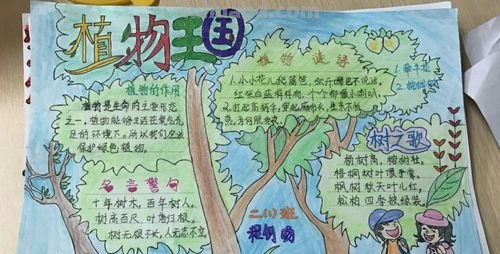 植物王国
植物的作用
植物是生命的主要形态
之一，植物能够生活在氧气充
足的环境下。所以我们应该
保护绿色植物。
名言警句
十年树木，百年树人。
树高百尺，叶落归根。
树无根不长，人无志不立。
植物谜语
1.小小花儿爬篱笆，张开嘴巴不说话，
红紫白蓝样样有，个个都像小喇叭。
1.牵牛花
2.
树之歌
杨树高，榕树壮，
梧桐树叶像手掌。
枫树秋天叶儿红，
松柏四季披绿装。
二(1)班